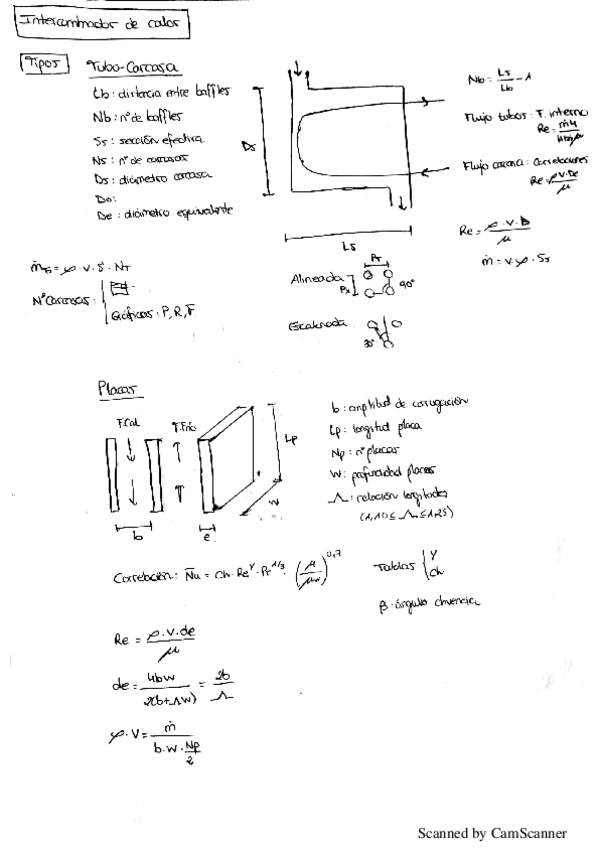 Intercambiador de calor
Tipos
Tubo-Carcasa
Lb: distancia entre baffles
Nb: nº de baffles
Ss: sección efectiva
Ns: nº de carcasas
Ds: diámetro carcasa
Do:
De: diámetro equivalente
Ds
Ls
Nb = Ls/Lb - 1
Flujo tubos: F. interno
Flujo carcasa: correlaciones
Re = ρ·V·De/μ
Re = ρ·V·D/μ
ṁ = V·ρ·Ss
ṁ = ρ·V·S·NT
Nº Carcasas:
Gráficas: P, R, F
Alineada
PT
90°
Escalonada
30°
Placas
F.Cal
F.Frío
b
e
Lp
w
b: amplitud de corrugación
Lp: longitud placa
Np: nº placas
W: profundidad placas
Λ: relación longitudes
(1,10 ≤ Λ ≤ 1,25)
Correlación: Nu = Ch·Re^y·Pr^1/3·(μ/μw)^0,17
Tablas { y
Ch
β: ángulo chevron
Re = ρ·V·de/μ
de = 4bw/2(b+Λw) = 2b/Λ
ρ·V = ṁ/(b·w·Np/2)
Scanned by CamScanner